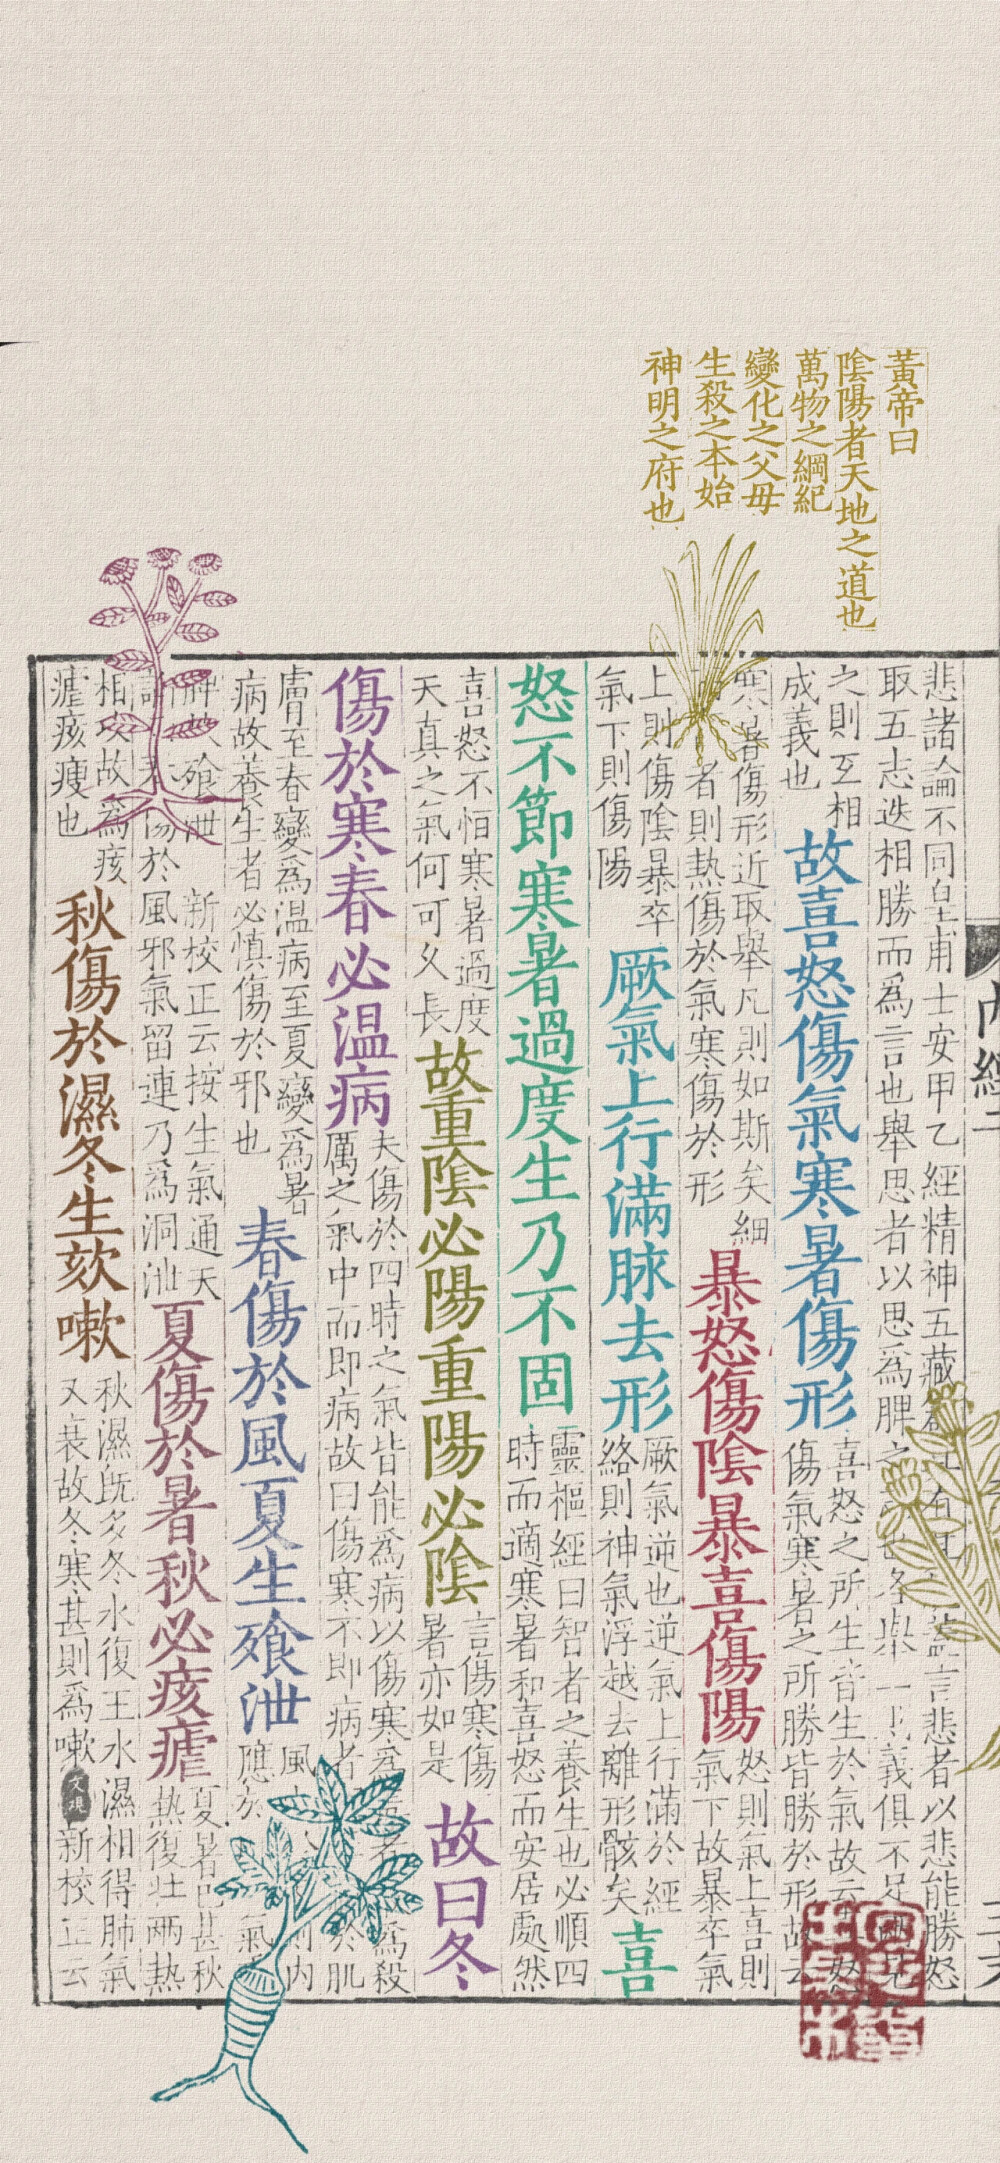 黃帝曰
陰陽者天地之道也
萬物之綱紀
變化之父母
生殺之本始
神明之府也
悲諸論不同皇甫士安甲乙經精神五藏言悲者以悲能勝怒
取五志迭相勝而為言也舉思者以思為脾之各舉一義俱不足
之則互相
成義也
故喜怒傷氣寒暑傷形
喜怒之所生皆生於氣故云
傷氣寒暑之所勝皆勝於形故云
寒暑傷形近取舉凡則如斯矣細
者則熱傷於氣寒傷於形
暴怒傷陰暴喜傷陽
怒則氣上喜則
氣下故暴卒氣
上則傷陰暴卒
氣下則傷陽
厥氣上行滿脉去形
厥氣逆也逆氣上行滿於經
絡則神氣浮越去離形骸矣
喜
怒不節寒暑過度生乃不固
靈樞經曰智者之養生也必順四
時而適寒暑和喜怒而安居處然
喜怒不恒寒暑過度
天真之氣何可久長
故重陰必陽重陽必陰
言傷寒傷
暑亦如是
故曰冬
傷於寒春必温病
夫傷於四時之氣皆能為病以傷寒為者為殺
厲之氣中而即病故曰傷寒不即病者於肌
膚至春變為温病至夏變為暑
病故養生者必慎傷於邪也
春傷於風夏生飱泄
風則内
應於氣
飱泄新校正云按生氣通天
傷於風邪氣留連乃為洞泄
夏傷於暑秋必痎瘧
夏暑已甚秋
熱復壯兩熱
相攻故為痎
瘧痎瘦也
秋傷於濕冬生欬嗽
秋濕既多冬水復王水濕相得肺氣
又衰故冬寒甚則為嗽新校正云